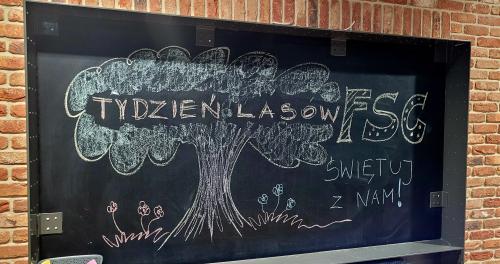 TYDZIEŃ LASÓW FSC
ŚWIĘTUJ
Z NAMI!